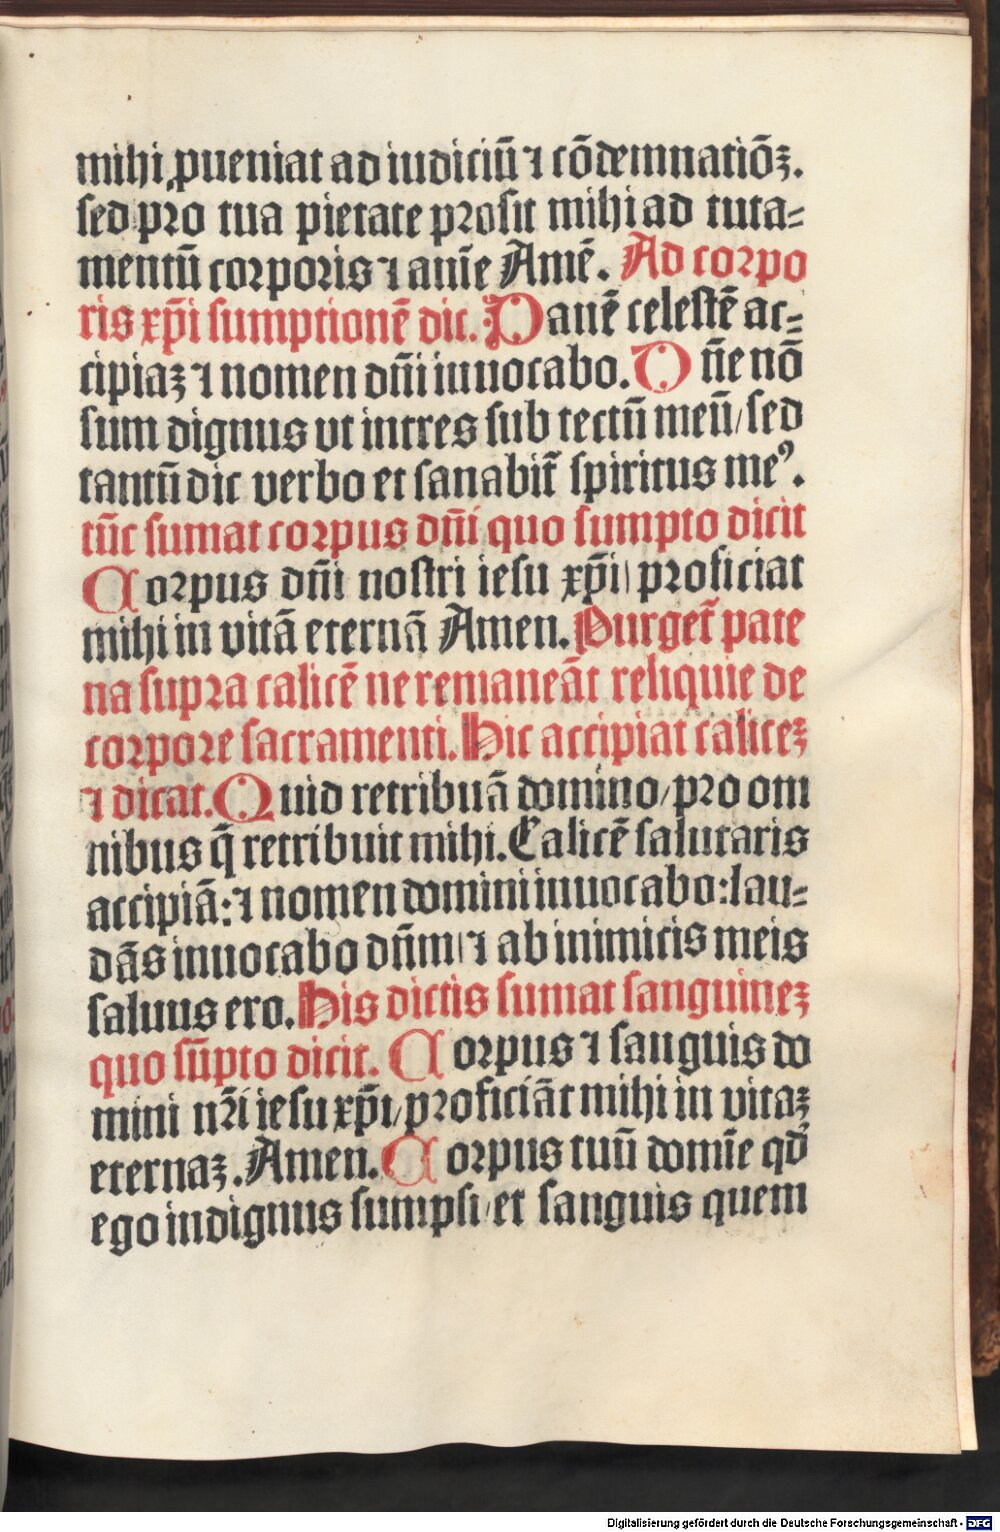 mihi ꝓueniat ad iudiciū ⁊ cōdemnatiōꝫ.
sed pro tua pietate prosit mihi ad tuta-
mentū corporis ⁊ anīe Amē. Ad corpo
ris xp̄i sumptionē dic. Panē celestē ac-
cipiaꝫ ⁊ nomen dn̄i inuocabo. Dn̄e nō
sum dignus vt intres sub tectū meū/ sed
tantū dic verbo et sanabit̄ spiritus meꝰ.
tūc sumat corpus dn̄i quo sumpto dicit
Corpus dn̄i nostri iesu xp̄i/ proficiat
mihi in vitā eternā Amen. Purget̄ pate
na supra calicē ne remaneāt reliquie de
corpore sacramenti. Hic accipiat caliceꝫ
⁊ dicat. Quid retribuā domino/ pro om
nibus q̄ retribuit mihi. Calicē salutaris
accipiā: ⁊ nomen domini inuocabo: lau-
dās inuocabo dn̄m/ ⁊ ab inimicis meis
saluus ero. His dictis sumat sanguineꝫ
quo sūpto dicit. Corpus ⁊ sanguis do
mini nr̄i iesu xp̄i/ proficiāt mihi in vitaꝫ
eternaꝫ. Amen. Corpus tuū domīe qd̄
ego indignus sumpsi/ et sanguis quem
Digitalisierung gefördert durch die Deutsche Forschungsgemeinschaft - DFG